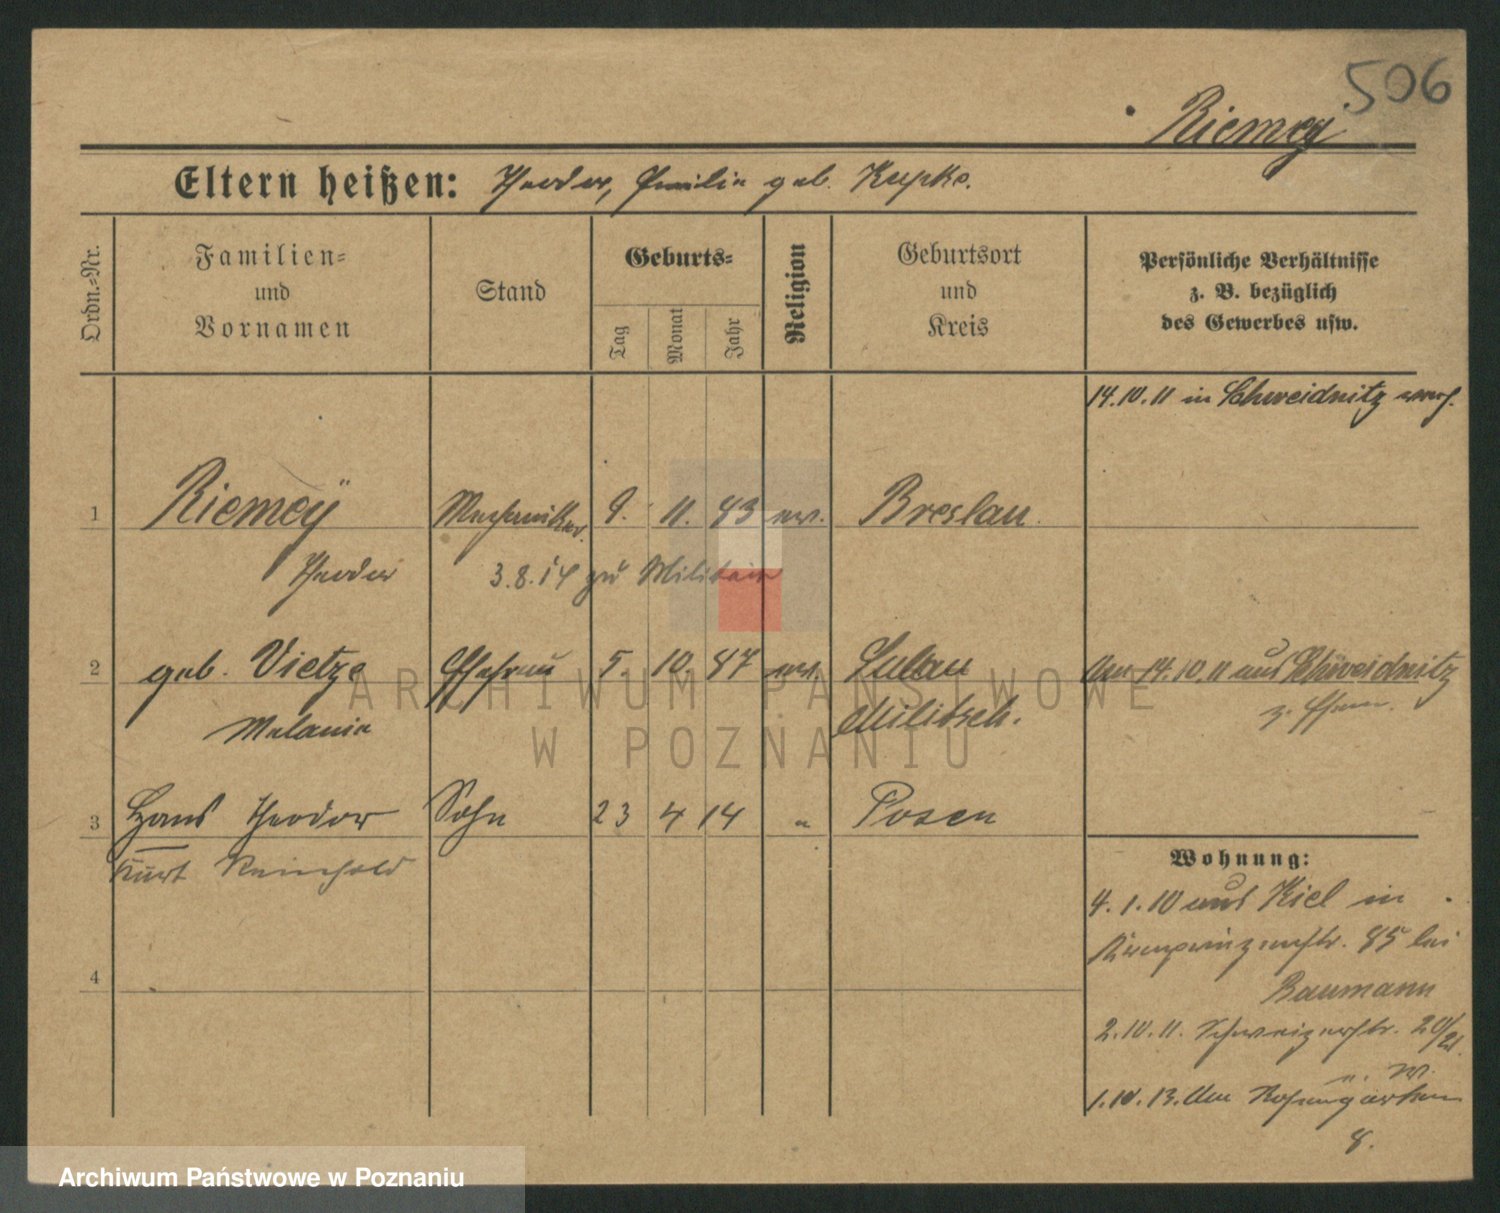 506
Riemey
Eltern heißen: Theodor, Emilie geb. Kupke.
Ordn.-Nr.
Familien-
und
Vornamen
Stand
Geburts-
Tag
Monat
Jahr
Religion
Geburtsort
und
Kreis
Persönliche Verhältnisse
z. B. bezüglich
des Gewerbes usw.
14.10.11 in Schweidnitz verh.
1 Riemey Mechaniker 9. 11. 83 ev. Breslau
Theodor 3.8.14 zu Militair
2 geb. Vietze Ehefrau 5. 10. 87 ev. Sulau
Melanie Militsch.
14.10.11 aus Schweidnitz
z. Ehem.
3 Hans Theodor Sohn 23 4 14 " Posen
Kurt Reinhold
4
Wohnung:
4.1.10 aus Kiel in
Kronprinzenstr. 85 bei
Baumann
2.10.11. Schweizerstr. 20/21.
1.10.13. Am Rosengarten
8.
ARCHIWUM PAŃSTWOWE
W POZNANIU
Archiwum Państwowe w Poznaniu